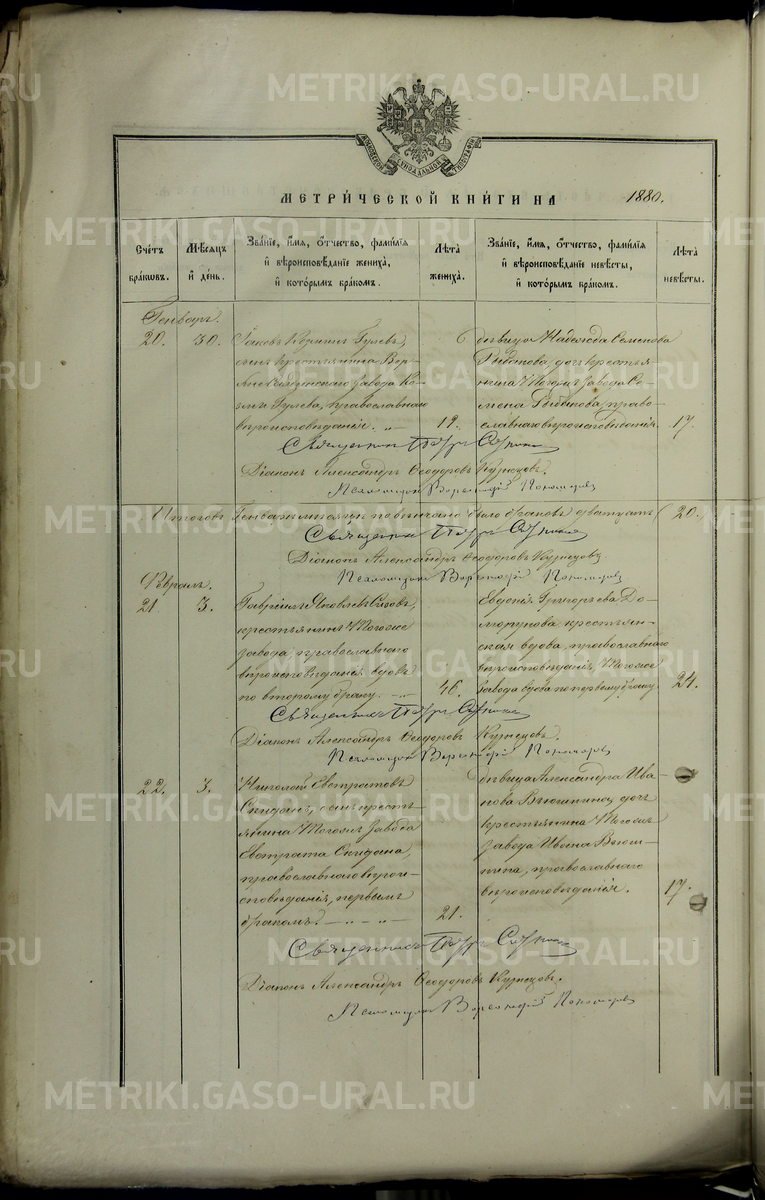 METRIKI.GASO-URAL.RU
МЕТРИ́ЧЕСКОЙ КНИ́ГИ НА 1880.
Сче́тъ бра́кѡвъ.
Мѣ́сяцъ и҆ де́нь.
Зва́нїе, и҆́мѧ, ѻ҆́тчество, фами́лїѧ
и҆ вѣроисповѣ́данїе жениха̀,
и҆ кото́рымъ бра́комъ.
Лѣ́та жениха̀.
Зва́нїе, и҆́мѧ, ѻ҆́тчество, фами́лїѧ
и҆ вѣроисповѣ́данїе невѣ́сты,
и҆ кото́рымъ бра́комъ.
Лѣ́та невѣ́сты.
Генварь.
20.
30.
сынъ крестьянина Вер-
православнаго
вѣроисповѣданія.
19.
Дѣвица Надежда Семенова
дочь крестья-
нина завода Се-
мена право-
славнаго вѣроисповѣданія.
17.
Священникъ Петръ
Діаконъ Александръ Ѳеодоровъ Кузнецовъ.
Псаломщикъ Пономаревъ
Итого въ Генварѣ мѣсяцѣ повѣнчано было браковъ двадцать (20.)
Священникъ Петръ
Діаконъ Александръ Ѳеодоровъ Кузнецовъ.
Псаломщикъ Пономаревъ
Февраль.
21.
3.
Гавріилъ Яковлевъ
крестьянинъ тогоже
завода, православнаго
вѣроисповѣданія, вдовъ
по второму браку.
46.
Евдокія Григорьева До-
крестьян-
ская вдова, православнаго
вѣроисповѣданія, тогоже
завода вдова по первому браку.
24.
Священникъ Петръ
Діаконъ Александръ Ѳеодоровъ Кузнецовъ.
Псаломщикъ Пономаревъ
22.
3.
Николай Евстратовъ
Скидинъ, сынъ кресть-
янина тогоже завода
Евстрата Скидина,
православнаго вѣрои-
сповѣданія, первымъ
бракомъ.
21.
Дѣвица Александра Ива-
нова Вьюшкина, дочь
крестьянина тогоже
завода Ивана Вьюш-
кина, православнаго
вѣроисповѣданія.
17.
Священникъ Петръ
Діаконъ Александръ Ѳеодоровъ Кузнецовъ.
Псаломщикъ Пономаревъ